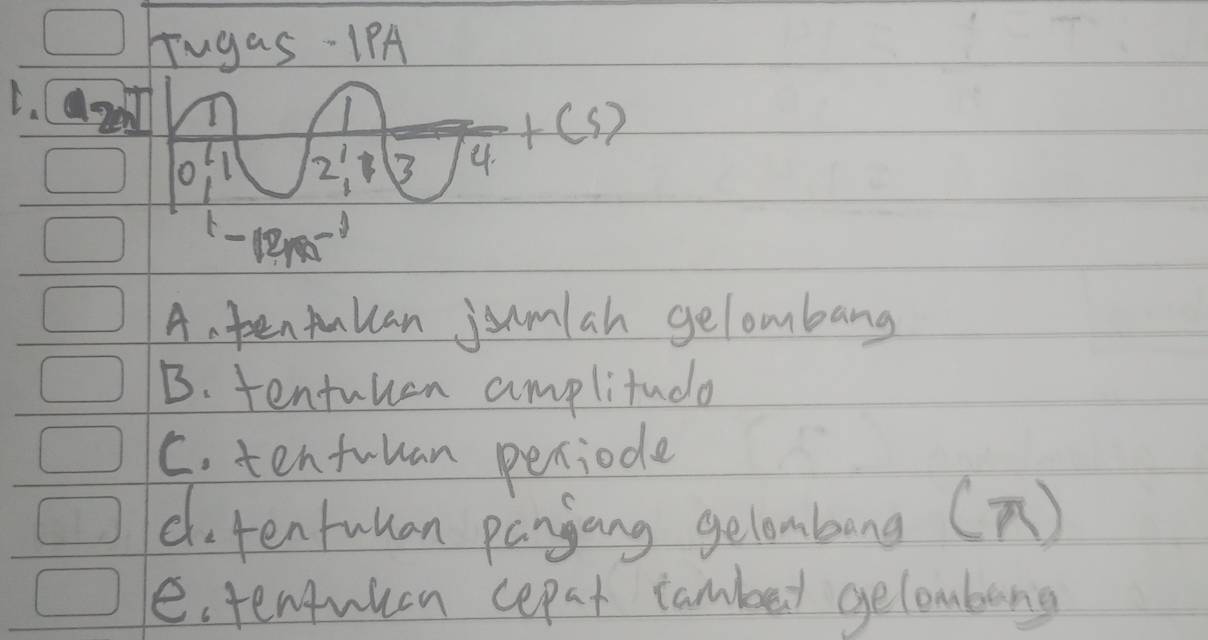 Tugas - IPA
1.
t (s)
0 1 2 3 4
A. tentukan jumlah gelombang
B. tentukan amplitudo
C. tentukan periode
d. tentukan panjang gelombang (π)
e. tentukan cepat rambat gelombang